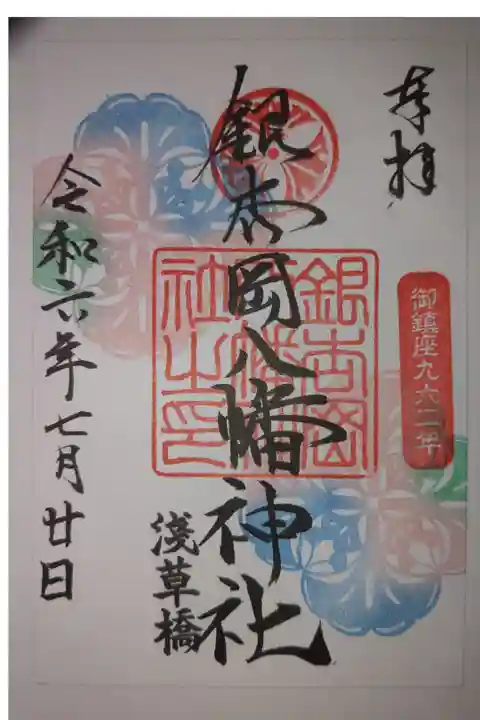 奉拝
御鎮座九六二年
銀杏岡八幡神社
銀杏岡
八幡神
社之印
浅草橋
令和六年七月廿日